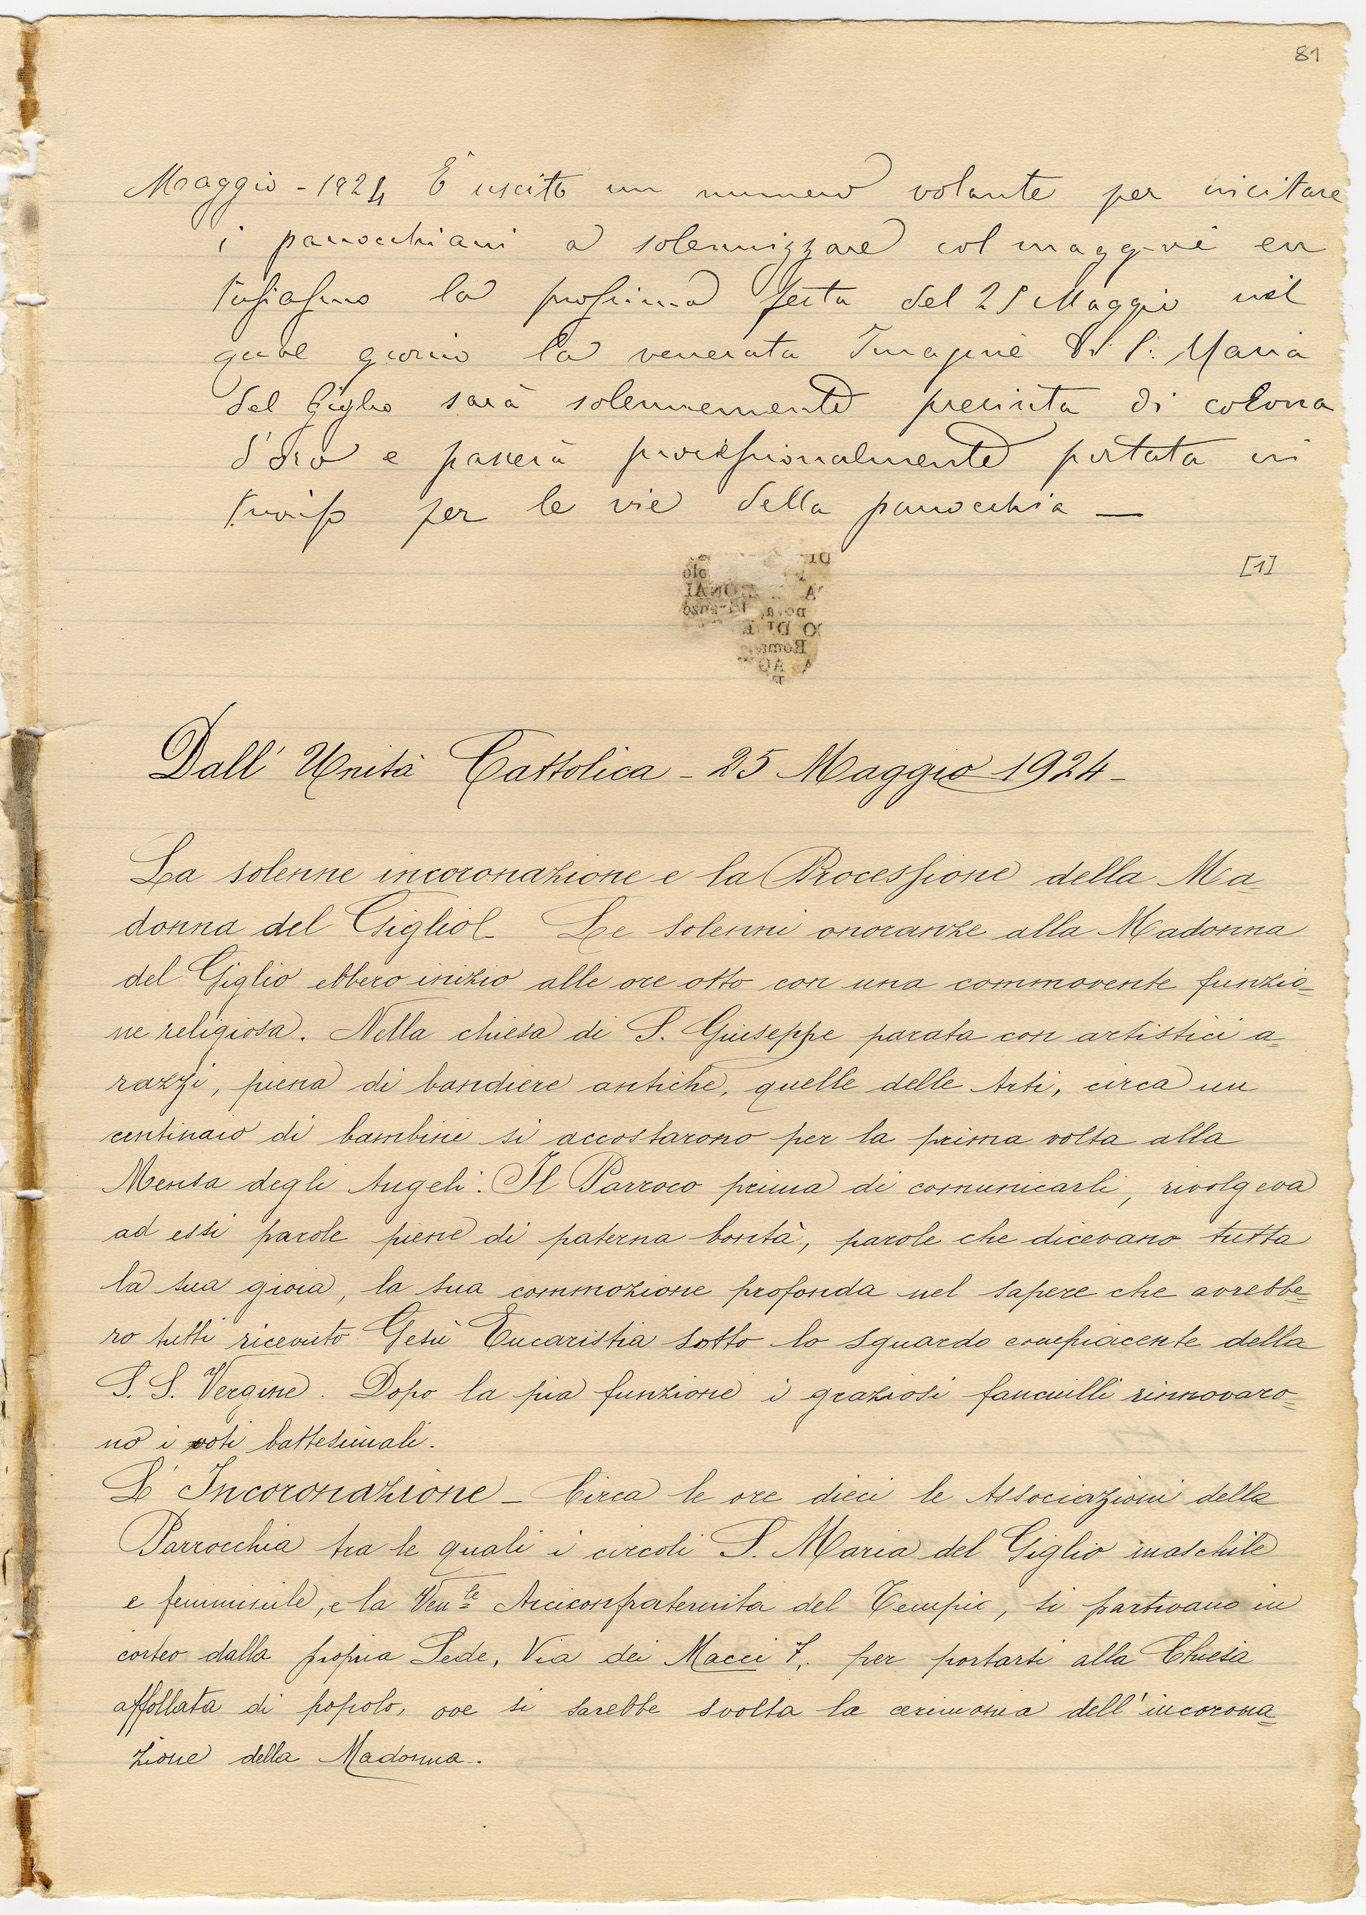 81
Maggio - 1924 È uscito un numero volante per incitare
i parrocchiani a solennizzare col maggior en
tusiasmo la prossima festa del 25 Maggio nel
quale giorno la venerata Imagine di S. Maria
del Giglio sarà solennemente precinta di corona
d'oro e passerà processionalmente portata in
trionfo per le vie della parrocchia —
[1]
Dall' Unità Cattolica - 25 Maggio 1924 -
La solenne incoronazione e la Processione della Ma=
donna del Giglio - Le solenni onoranze alla Madonna
del Giglio ebbero inizio alle ore otto con una commovente funzio=
ne religiosa. Nella chiesa di S. Giuseppe parata con artistici a=
razzi, piena di bandiere antiche, quelle delle Arti, circa un
centinaio di bambini si accostarono per la prima volta alla
Mensa degli Angeli. Il Parroco prima di comunicarli, rivolgeva
ad essi parole piene di paterna bontà, parole che dicevano tutta
la sua gioia, la sua commozione profonda nel sapere che avrebbe=
ro tutti ricevuto Gesù Eucaristia sotto lo sguardo compiacente della
S. S. Vergine. Dopo la pia funzione i graziosi fanciulli rinnovaro=
no i voti battesimali.
L' Incoronazione - Circa le ore dieci le Associazioni della
Parrocchia tra le quali i circoli S. Maria del Giglio maschile
e femminile, e la Ven.le Arciconfraternita del Tempio, si partivano in
corteo dalla propria Sede, Via dei Macci 7, per portarsi alla Chiesa
affollata di popolo, ove si sarebbe svolta la cerimonia dell' incorona=
zione della Madonna.